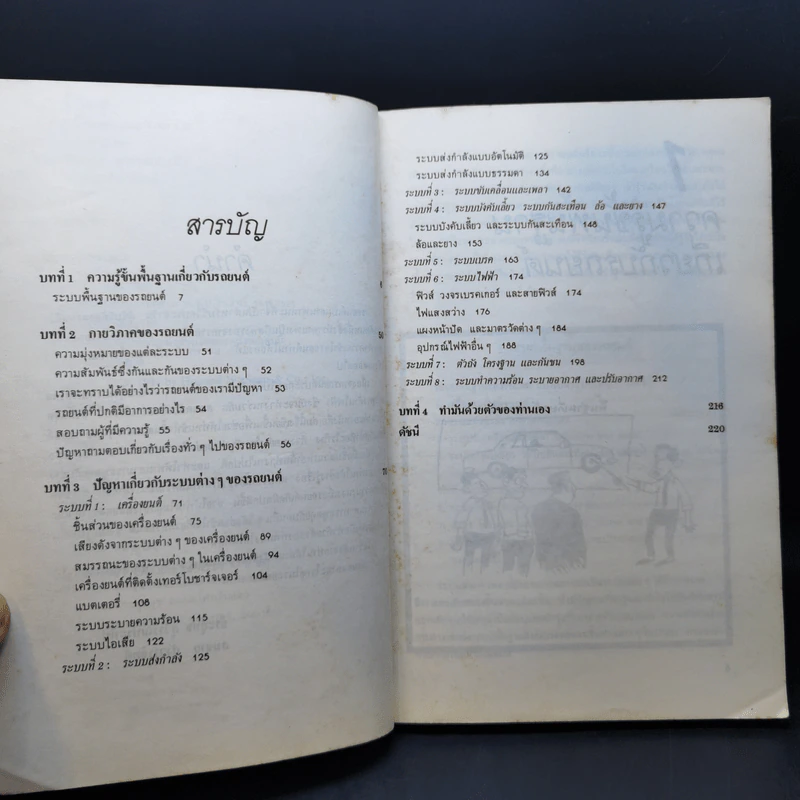 สารบัญ
บทที่ 1 ความรู้ขั้นพื้นฐานเกี่ยวกับรถยนต์
ระบบพื้นฐานของรถยนต์ 7
บทที่ 2 กายวิภาคของรถยนต์
ความมุ่งหมายของแต่ละระบบ 51
ความสัมพันธ์ซึ่งกันและกันของระบบต่าง ๆ 52
เราจะทราบได้อย่างไรว่ารถยนต์ของเรามีปัญหา 53
รถยนต์ที่ปกติมีอาการอย่างไร 54
สอบถามผู้ที่มีความรู้ 55
ปัญหาถามตอบเกี่ยวกับเรื่องทั่ว ๆ ไปของรถยนต์ 56
บทที่ 3 ปัญหาเกี่ยวกับระบบต่าง ๆ ของรถยนต์
ระบบที่ 1 : เครื่องยนต์ 71
ชิ้นส่วนของเครื่องยนต์ 75
เสียงดังจากระบบต่าง ๆ ของเครื่องยนต์ 89
สมรรถนะของระบบต่าง ๆ ในเครื่องยนต์ 94
เครื่องยนต์ที่ติดตั้งเทอร์โบชาร์จเจอร์ 104
แบตเตอรี่ 108
ระบบระบายความร้อน 115
ระบบไอเสีย 122
ระบบที่ 2 : ระบบส่งกำลัง 125
ระบบส่งกำลังแบบอัตโนมัติ 125
ระบบส่งกำลังแบบธรรมดา 134
ระบบที่ 3 : ระบบขับเคลื่อนและเพลา 142
ระบบที่ 4 : ระบบบังคับเลี้ยว ระบบกันสะเทือน ล้อ และยาง 147
ระบบบังคับเลี้ยว และระบบกันสะเทือน 148
ล้อและยาง 153
ระบบที่ 5 : ระบบเบรค 163
ระบบที่ 6 : ระบบไฟฟ้า 174
ฟิวส์ วงจรเบรคเกอร์ และสายฟิวส์ 174
ไฟแสงสว่าง 176
แผงหน้าปัด และมาตรวัดต่าง ๆ 184
อุปกรณ์ไฟฟ้าอื่น ๆ 188
ระบบที่ 7 : ตัวถัง โครงฐาน และกันชน 198
ระบบที่ 8 : ระบบทำความร้อน ระบายอากาศ และปรับอากาศ 212
บทที่ 4 ทำมันด้วยตัวของท่านเอง 216
ดัชนี 220